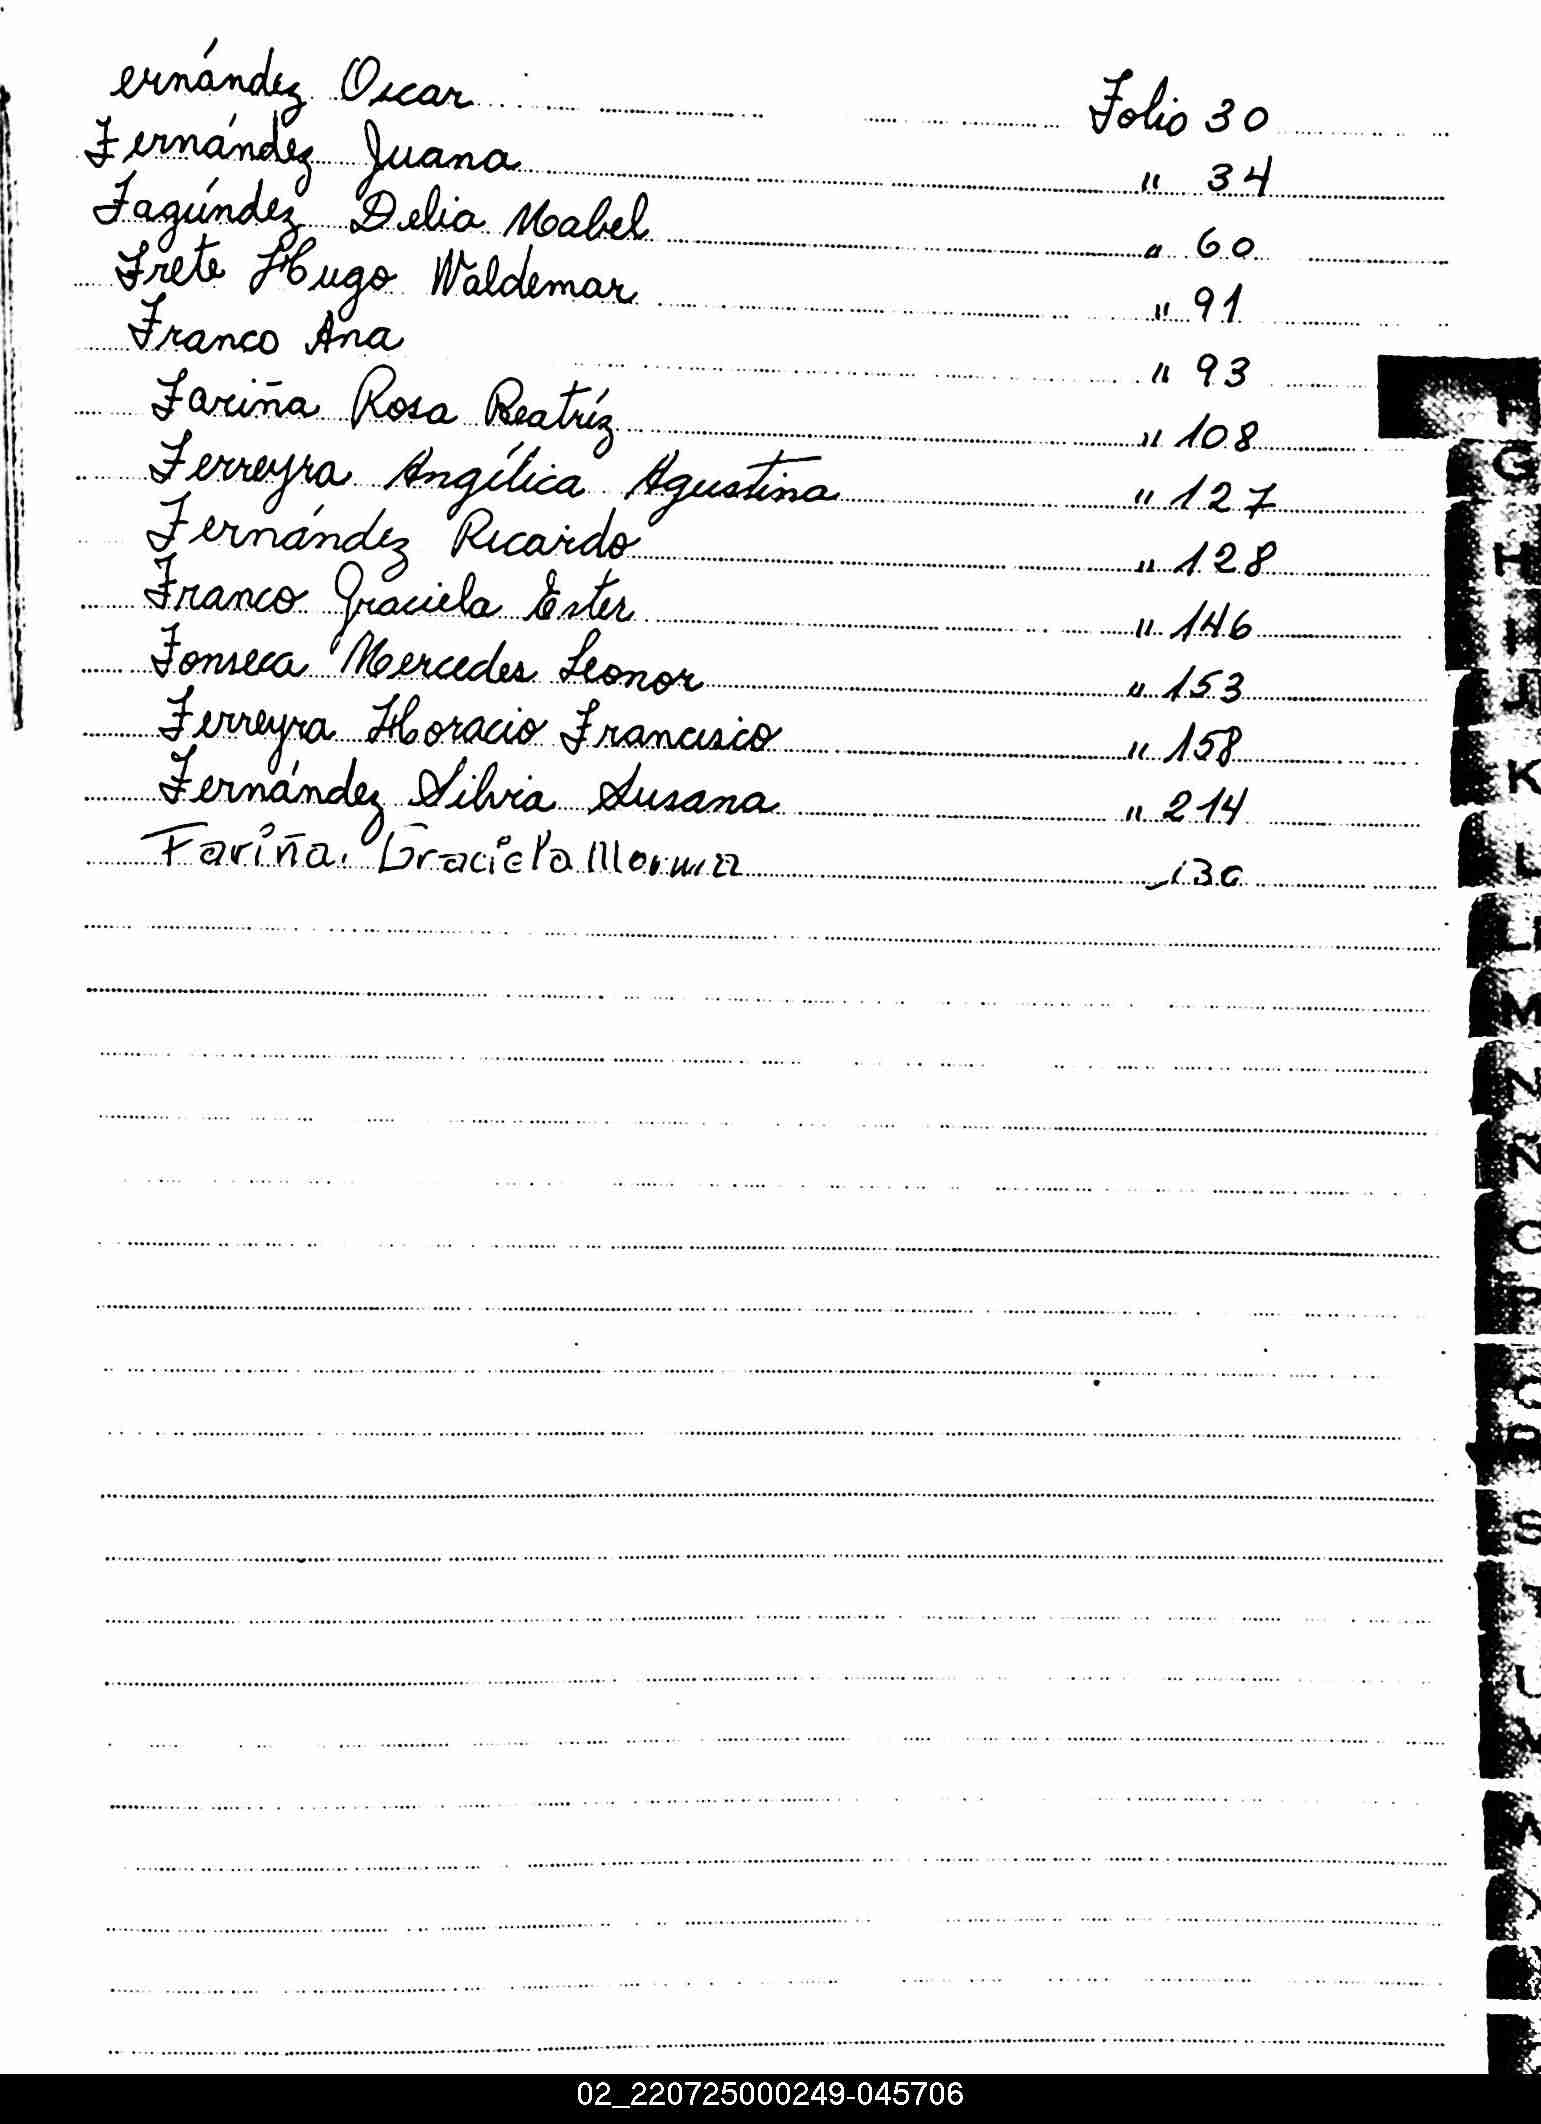 ernández Oscar Folio 30
Fernández Juana " 34
Fagúndez Delia Mabel " 60
Frete Hugo Waldemar " 91
Franco Ana " 93
Fariña Rosa Beatríz " 108
Ferreyra Angílica Agustina " 127
Fernández Ricardo " 128
Franco Graciela Ester " 146
Fonseca Mercedes Leonor " 153
Ferreyra Horacio Francisco " 158
Fernández Silvia Susana " 214
Fariña Graciela 130
G
H
I
J
K
L
LL
M
N
Ñ
O
P
Q
R
S
T
U
V
02_220725000249-045706